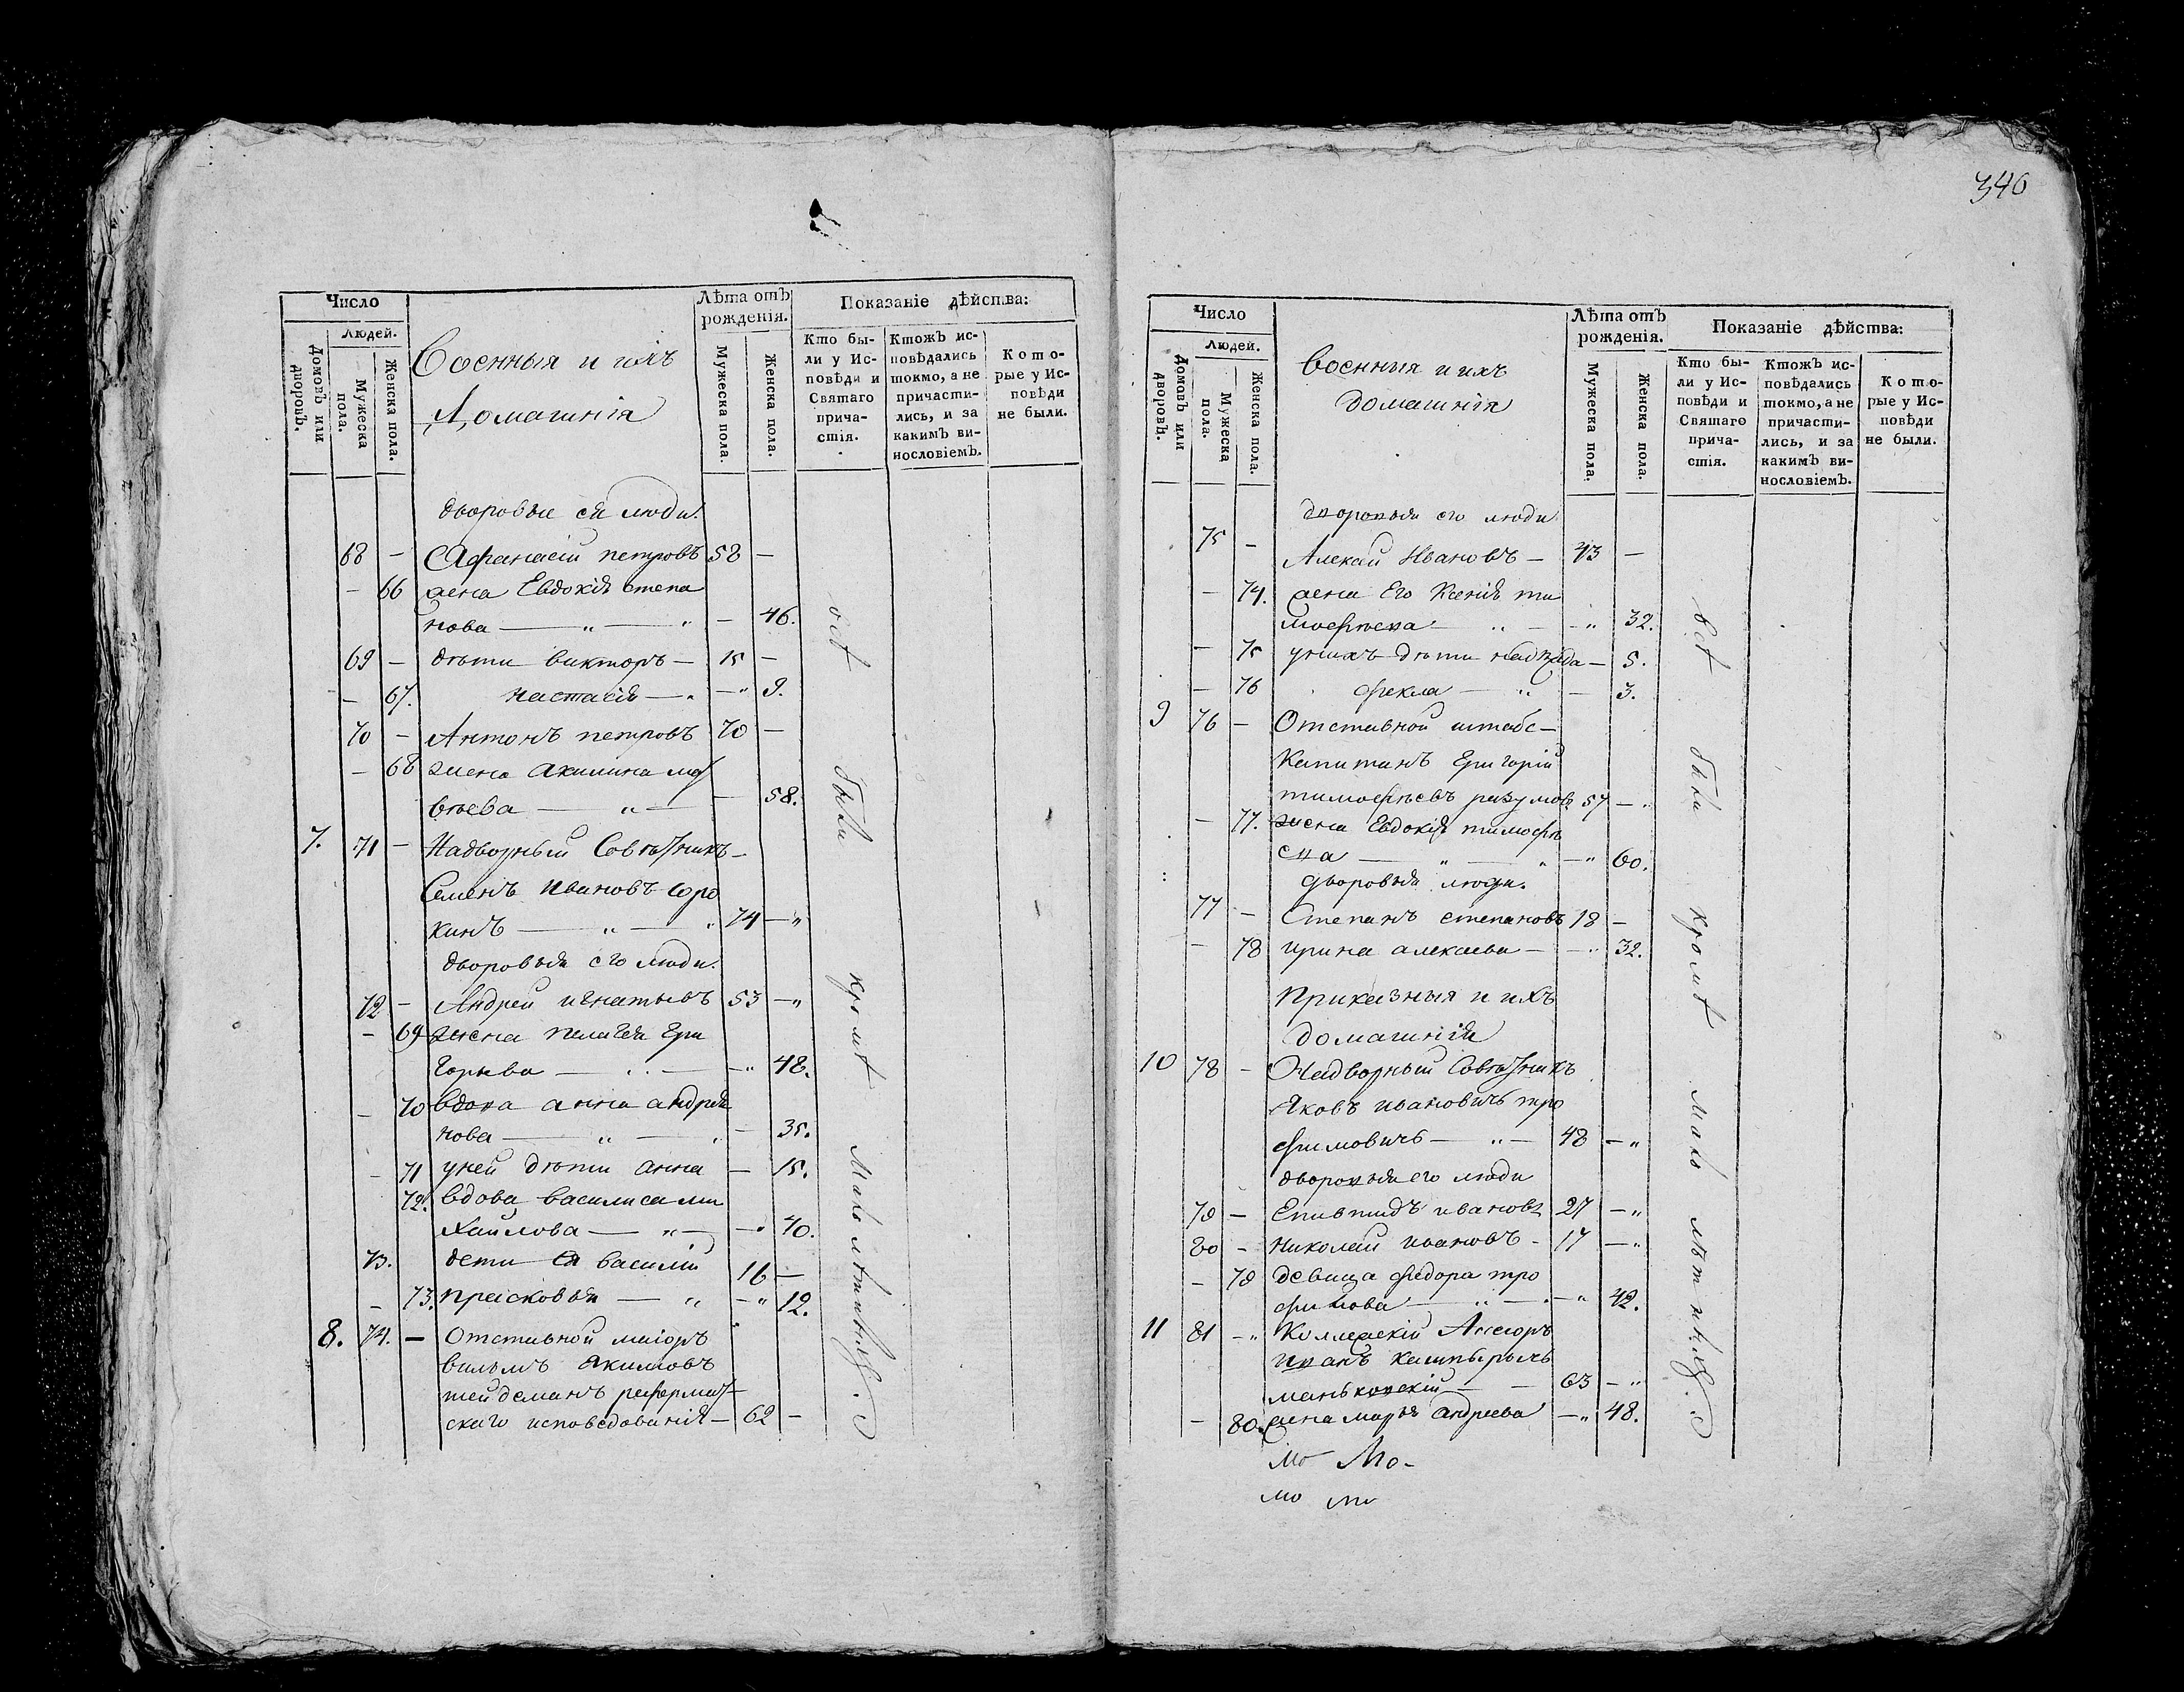 340
Число
Людей.
Домовъ или дворовъ.
Мужеска пола.
Женска пола.
Военныя и ихъ
Домашнія
Лѣта отъ рожденія.
Мужеска пола.
Женска пола.
Показаніе дѣйства:
Кто были у Исповѣди и Святаго причастія.
Ктожъ исповѣдались токмо, а не причастились, и за какимъ винословіемъ.
Которые у Исповѣди не были.
дворовые ея люди.
68 — Афанасій петровъ 58 —
— 66 жена Евдокія степа
нова — " — " — 46.
69 — дѣти викторъ — 15 —
— 67. настасія — " — " 9.
70 — Антонъ петровъ 70 —
— 68 жена Акилина мат
вѣева — " — — 58.
7. 71 — Надворный Совѣтникъ —
Семенъ Ивановъ Соро
кинъ — " — " 74 — "
дворовыя его люди.
72 — Андрей игнатьевъ 53 — "
— 69 жена пелагея гри
горьева — " — — " 48.
— 70 вдова анна андрея
нова — " — " — 35.
— 71 уней дѣти анна — 15.
72. вдова василиса ми
хайлова — " — — " 40.
73. дети ея василій 16 —
— 73. прасковья — " — " 12.
8. 74. — Отставной маіоръ
вильмъ Якимовъ
тейдеманъ реформат
скаго исповедованія — 62 —
всѣ были кромѣ малолѣтныхъ.
Число
Людей.
Домовъ или дворовъ.
Мужеска пола.
Женска пола.
военныя и ихъ
домашнія
Лѣта отъ рожденія.
Мужеска пола.
Женска пола.
Показаніе дѣйства:
Кто были у Исповѣди и Святаго причастія.
Ктожъ исповѣдались токмо, а не причастились, и за какимъ винословіемъ.
Которые у Исповѣди не были.
дворовыя его люди
75 — Алексѣй Ивановъ — 43 —
— 74. жена Его Ксенія ти
мофѣева — " — — " 32.
— 75 унихъ дѣти надежда — 5.
— 76 фекла — " — 3.
9 76 — Отставной штабс —
Капитанъ Григорій
тимофѣевъ разумов 57 — "
— 77. жена Евдокія тимофѣ
ева — " — " — " 60.
дворовыя люди.
77 — Степанъ степановъ 18 —
— 78 ирина алексѣева — — " 32.
Приказныя и ихъ
домашнія
10 78 — Надворный Совѣтникъ
Яковъ ивановичъ тро
фимовичъ — " — 48 — "
дворовыя его люди
79 — Епивтидъ ивановъ 27 — "
80 — Николай ивановъ — 17 — "
— 79 девица федора тро
фимова — " — — " 42.
11 81 — " Коллежскій Ассесоръ
иванъ каспырычъ
маньковскій — — 63 — "
— 80. жена марья Андреева — " 48.
мо Мо —
мо
всѣ были кромѣ мало лѣтныхъ.